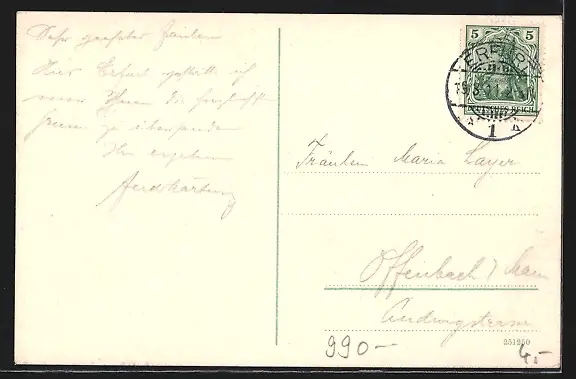 Sehr geehrtes Fräulein
Hier Erfurt gestatte ich
mir Ihnen die herzlichsten
zu übersenden
Ihr ergebener
5 5
ERFURT
1
DEUTSCHES REICH
Fräulein Maria Layer
Offenbach / Main
Ludwigstrasse
990-
251250
4.-